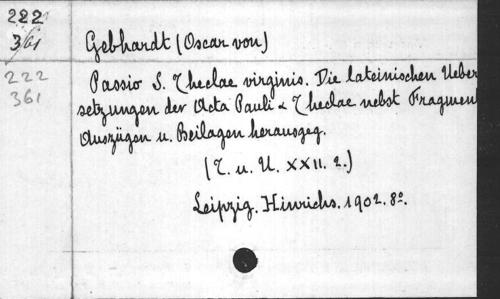 222
361
Gebhardt (Oscar von)
222
361
Passio S. Theclae virginis. Die lateinischen Ueber
setzungen der Acta Pauli & Theclae nebst Fragmen
Auszügen u. Beilagen herausgeg.
(T. u. U. XXII. 2.)
Leipzig. Hinrichs. 1902. 8º.